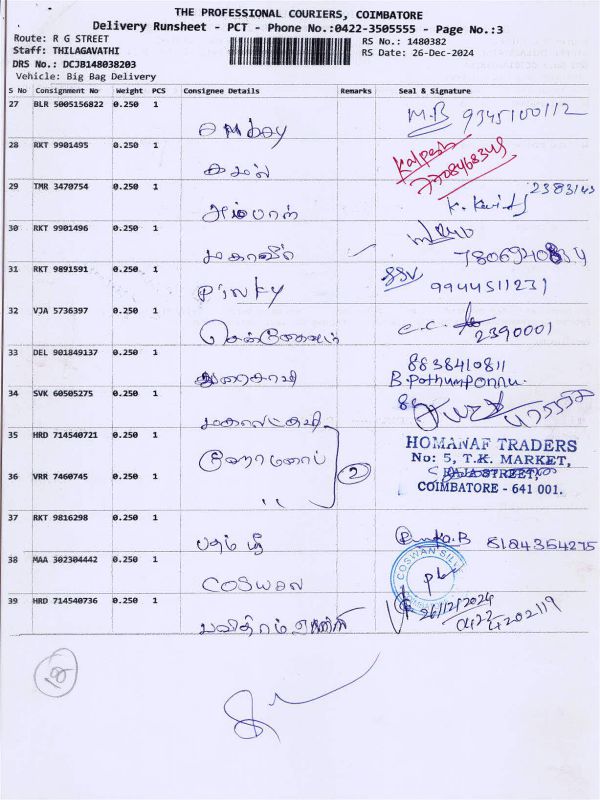 THE PROFESSIONAL COURIERS, COIMBATORE
Delivery Runsheet - PCT - Phone No.:0422-3505555 - Page No.:3
Route: R G STREET
Staff: THILAGAVATHI
DRS No.: DCJB148038203
Vehicle: Big Bag Delivery
RS No.: 1480382
RS Date: 26-Dec-2024
S No Consignment No Weight PCS Consignee Details Remarks Seal & Signature
27 BLR 5005156822 0.250 1 M.B 9345100112
28 RKT 9901495 0.250 1 கமல் Kalpesh
7708468348
29 TMR 3470754 0.250 1 அம்பாள் 2383143
30 RKT 9901496 0.250 1 மகாவீர்
31 RKT 9891591 0.250 1 Pinky SSV 9944511231
32 VJA 5736397 0.250 1 C.C. 2390001
33 DEL 901849137 0.250 1 துரைசாமி 8838410811
B. Pothumponnu.
34 SVK 60505275 0.250 1 மகாலட்சுமி
35 HRD 714540721 0.250 1 HOMANAF TRADERS
No: 5, T.K. MARKET,
RAJA STREET,
COIMBATORE - 641 001.
2
36 VRR 7460745 0.250 1 ,,
37 RKT 9816298 0.250 1 பதம் ஸ்ரீ 8184354275
38 MAA 302304442 0.250 1 COSWAN COSWAN SILV
39 HRD 714540736 0.250 1 26/12/2024
0422 4202119